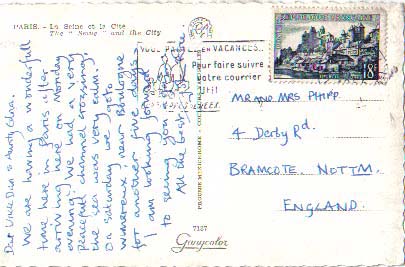 PARIS. - La Seine et la Cité
The "Seine" and the City
Dear Uncle Dick & Aunty Clara.
We are having a wonderful
time here in Paris after
arriving here on Monday
evening. We had a very
peaceful channel crossing,
the sea was very calm.
On saturday we go to
Wimereux, near Boulogne
for another five days.
I am looking forward
to seeing you
All the best
VOUS PARTEZ EN VACANCES..
Pour faire suivre
votre courrier
18F
MR AND MRS PHIPP.
4 Derby Rd.
BRAMCOTE. NOTTM.
ENGLAND.
7157
Guycolor